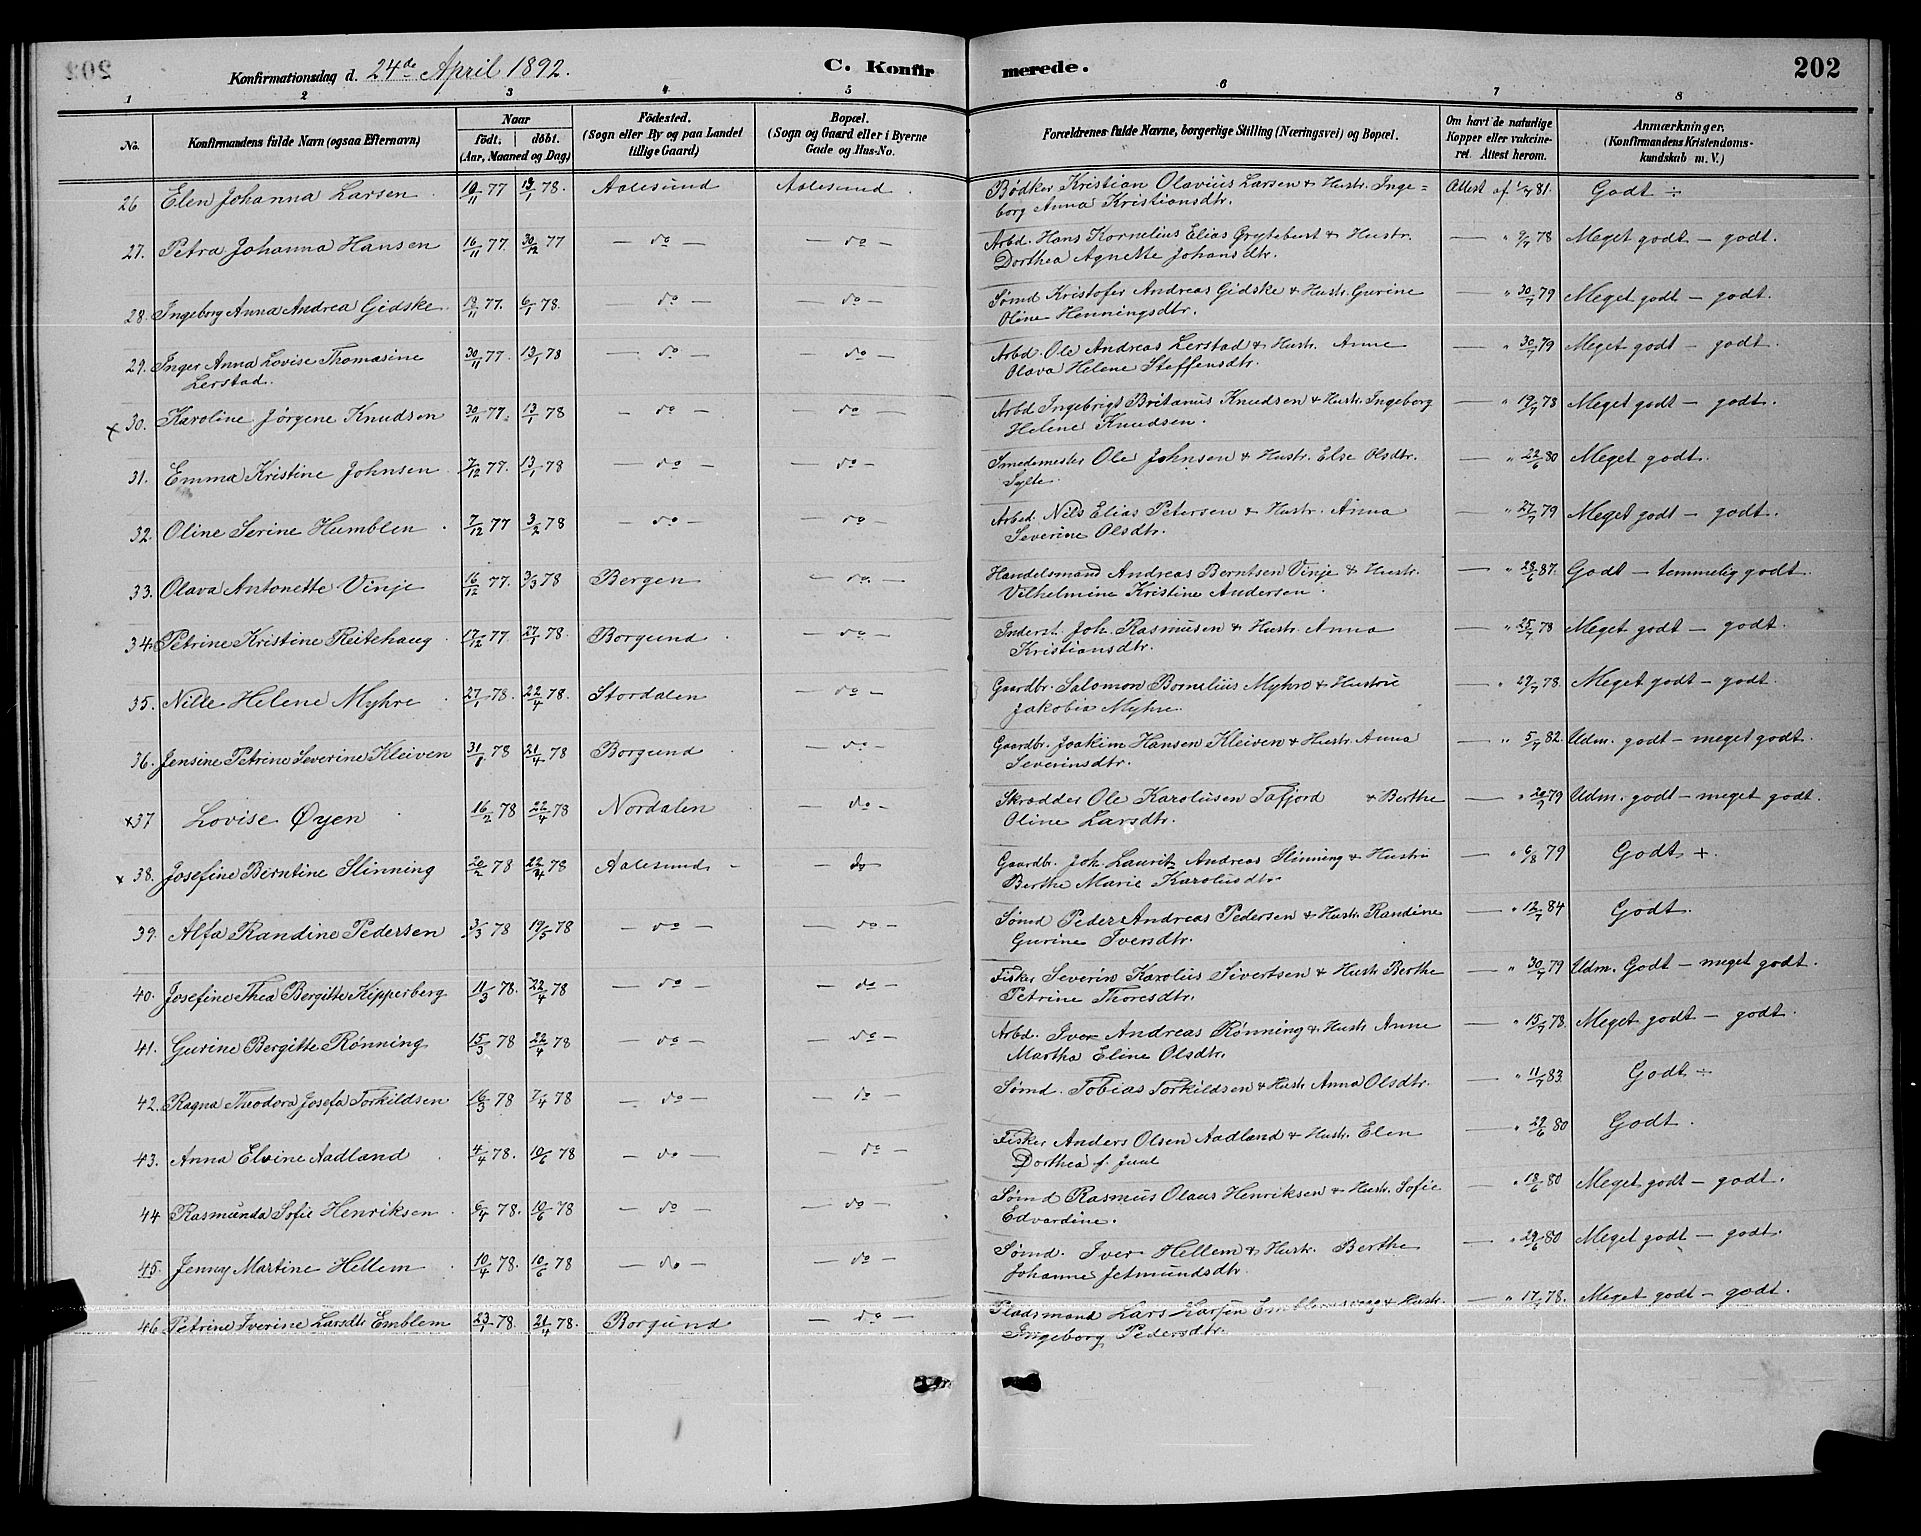 Konfirmationsdag d. 24de April 1892. C. Konfirmerede. 202
1 2 3 4 5 6 7 8
No. Konfirmandens fulde Navn (ogsaa Efternavn) Naar født. døbt. (Aar, Maaned og Dag) Födested. (Sogn eller By og paa Landet tillige Gaard) Bopæl. (Sogn og Gaard eller i Byerne Gade og Hus-No. Forældrenes fulde Navne, borgerlige Stilling (Næringsvei) og Bopæl. Om havt de naturlige Kopper eller vakcineret. Attest herom. Anmærkninger. (Konfirmandens Kristendomskundskab m. V.)
26 Elen Johanna Larsen 10/11 77 13/1 78. Aalesund Aalesund Bødker Kristian Olavius Larsen & Hustr. Inge=
borg Anna Kristiansdtr. Attest af 1/7 81. Godt ÷
27. Petra Johanna Hansen 16/11 77. 30/12 77 — do — — do — Arbd. Hans Kornelius Elias Grytebust & Hustr.
Dorthea Agnette Johansdtr. — " 9/7 78 Meget godt — godt.
28. Ingeborg Anna Andrea Gidske 18/11 77. 6/1 78. — do — — do — Sømd Kristofer Andreas Gidske & Hustr. Gurine
Oline Henningsdtr. — " 30/7 79 Meget godt — godt.
29. Inger Anna Lovise Thomasine
Lerstad. 30/11 77. 13/1 78 — do — — do — Arbd Ole Andreas Lerstad & Hustr. Anne
Olava Helene Steffensdtr. — " 30/7 79 Meget godt — godt.
x 30. Karoline Jørgene Knudsen 30/11 77. 13/1 78 — do — — do Arbd Ingebrigt Britanus Knudsen & Hustr. Ingeborg
Helene Knudsen. — " 19/7 78 Meget godt — godt.
31. Emma Kristine Johnsen 7/12 77. 13/1 78 — do — — do — Smedemester Ole Johnsen & Hustr. Else Olsdtr.
Sylte. — " 22/6 80 Meget godt.
32. Oline Serine Humblen 7/12 77 3/2 78 — do — — do — Arbd. Nils Elias Petersen & Hustr. Anna
Severine Olsdtr. — " 27/7 79 Meget godt — godt.
33. Olava Antonette Vinje 16/12 77. 3/3 78 Bergen — do. — Handelsmand Andreas Berntsen Vinje & Hustr.
Vilhelmine Kristine Andersen. — " 28/6 87. Godt — temmelig godt.
34. Petrine Kristine Reitehaug 17/12 77 27/1 78. Borgund — do — Inderst. Joh. Rasmusen & Hustr. Anna
Kristiansdtr. — " 25/7 78 Meget godt — godt.
35. Nille Helene Myhre 27/1 78. 22/4 78. Stordalen — do — Gaardbr. Salomon Bornelius Myhre & Hustru
Jakobia Myhre. — " 29/7 78 Meget godt — godt.
36. Jensine Petrine Severine Kleiven 31/1 78 21/4 78 Borgund — do — Gaardbr. Joakim Hansen Kleiven & Hustr. Anna
Severinsdtr. — " 5/7 82. Udm. godt — meget godt.
x37 Lovise Øyen 16/2 78 22/4 78 Nordalen — do — Skrædder Ole Karolusen Tafjord & Berthe
Oline Larsdtr. — " 29/7 79 Udm. godt — meget godt.
x 38. Josefine Berntine Slinning 20/2 78 22/4 78 Aalesund — do Gaardbr. Joh. Laurits Andreas Slinning & Hustru
Berthe Marie Karolusdtr. — " 6/8 79 Godt +.
39. Alfa Randine Pedersen 3/3 78 19/5 78 — do — — do — Sømd Peder Andreas Pedersen & Hustr. Randine
Gurine Iversdtr. — " 12/7 84 Godt.
40. Josefine Thea Bergitte Kipperberg 11/3 78. 22/4 78 — do — — do — Fisker Severin Karolius Sivertsen & Hustr Berthe
Petrine Thoresdtr. — " 30/7 79 Udm. Godt — meget godt.
41. Gurine Bergitte Rønning 15/3 78 22/4 78 — do — — do — Arbd. Iver Andreas Rønning & Hustr Anne
Martha Eline Olsdtr. — " 15/7 78. Meget godt — godt.
42. Ragna Theodora Josefa Torkildsen 16/3 78 7/4 78 — do — — do — Sømd. Tobias Torkildsen & Hustr Anna Olsdtr. — " 11/7 83. Godt ÷
43. Anna Elvine Aadland 4/4 78. 10/6 78 — do — — do — Fisker Anders Olsen Aadland & Hustr. Elen
Dorthea f. Juul — " 29/6 80 Godt.
44 Rasmunda Sofie Henriksen 6/4 78. 10/6 78 — do — — do — Sømd Rasmus Olaus Henriksen & Hustr. Sofie
Edvardine. — " 18/6 80 Meget godt — godt.
45. Jenny Martine Hellem 10/4 78. 10/6 78 — do — — do Sømd. Iver Hellem & Hustr. Berthe
Johanne Jetmundsdtr. — " 29/6 80 Meget godt — godt.
46. Petrine Iverine Larsdtr Emblem 23/1 78. 21/4 78. Borgund — do — Pladsmand Lars Larsen Emblemsvaag & Hustr.
Ingeborg Pedersdtr. — " 17/7 78. Meget godt — godt.